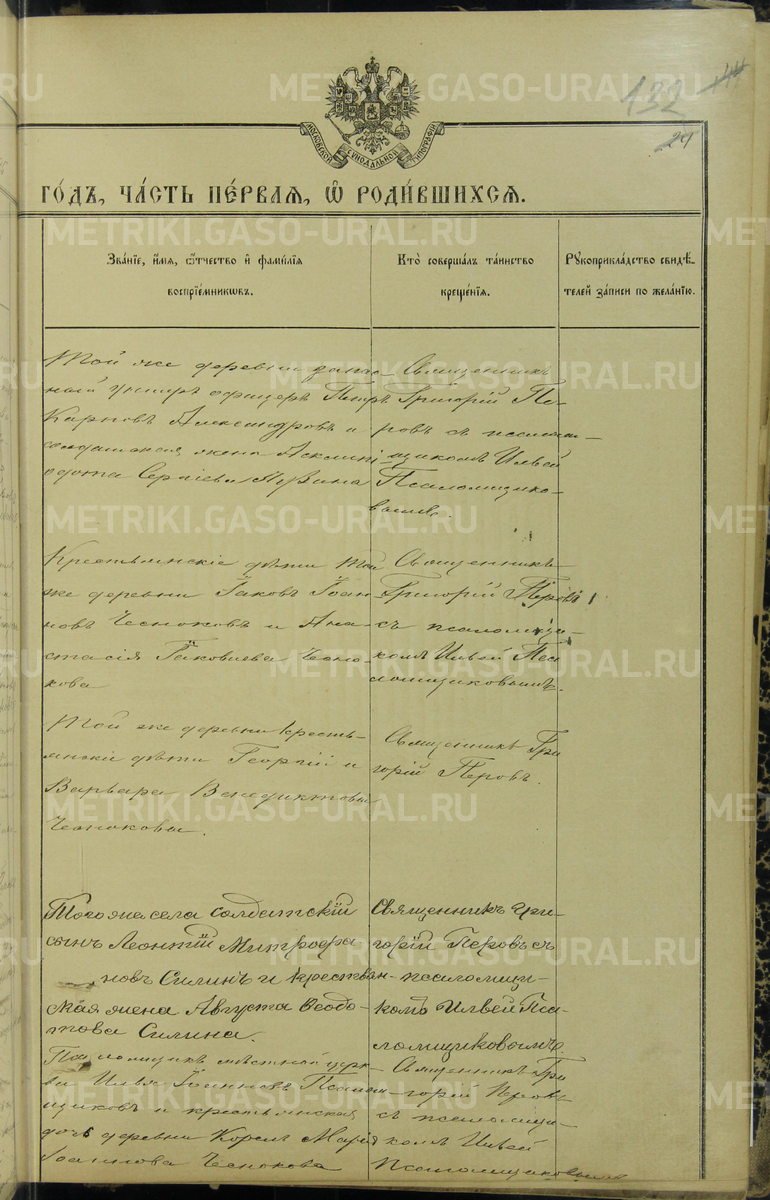 132 44
29
МОСКОВСКОЙ СѴНОДАЛЬНОЙ ТИПОГРАФІИ
ГО́ДЪ, ЧА́СТЬ ПЕ́РВАЯ, Ѡ РОДИ́ВШИХСЯ.
Зва́ніе, и́мя, о́тчество и фами́лія
воспріе́мниковъ.
Кто̀ соверша́лъ та́инство
креще́нія.
Рукоприкла́дство свидѣ́-
телей за́писи по жела́нію.
Той же деревни запас-
ной унтеръ офицеръ Петръ
Карповъ Александровъ и
солдатская жена
Сергіева
Священникъ
Григорій Пе-
ровъ съ псалом-
щикомъ Ильей
Псаломщико-
вымъ.
Крестьянскіе дѣти той
же деревни Іаковъ Іоан-
новъ Чесноковъ и Ана-
стасія Іаковлева Чесно-
кова
Священникъ
Григорій Перовъ
съ псаломщи-
комъ Ильей Пса-
ломщиковымъ.
Той же деревни кресть-
янскіе дѣти Георгій и
Варвара Венедиктовы
Чесноковы.
Священникъ Гри
горій Перовъ.
Того же села солдатскій
сынъ Леонтій Митрофа
новъ Силинъ и крестьян-
ская жена Августа Ѳедо-
това Силина.
Священникъ Гри-
горій Перовъ съ
псаломщи-
комъ Ильей Пса-
ломщиковымъ.
Псаломщикъ мѣстной церк-
ви Илья Іоанновъ Псалом-
щиковъ и крестьянская
дочь деревни Корелъ Марія
Іоаннова Чеснокова
Священникъ Гри
горій Перовъ
съ псаломщи-
комъ Ильей
Псаломщиковымъ
METRIKI.GASO-URAL.RU